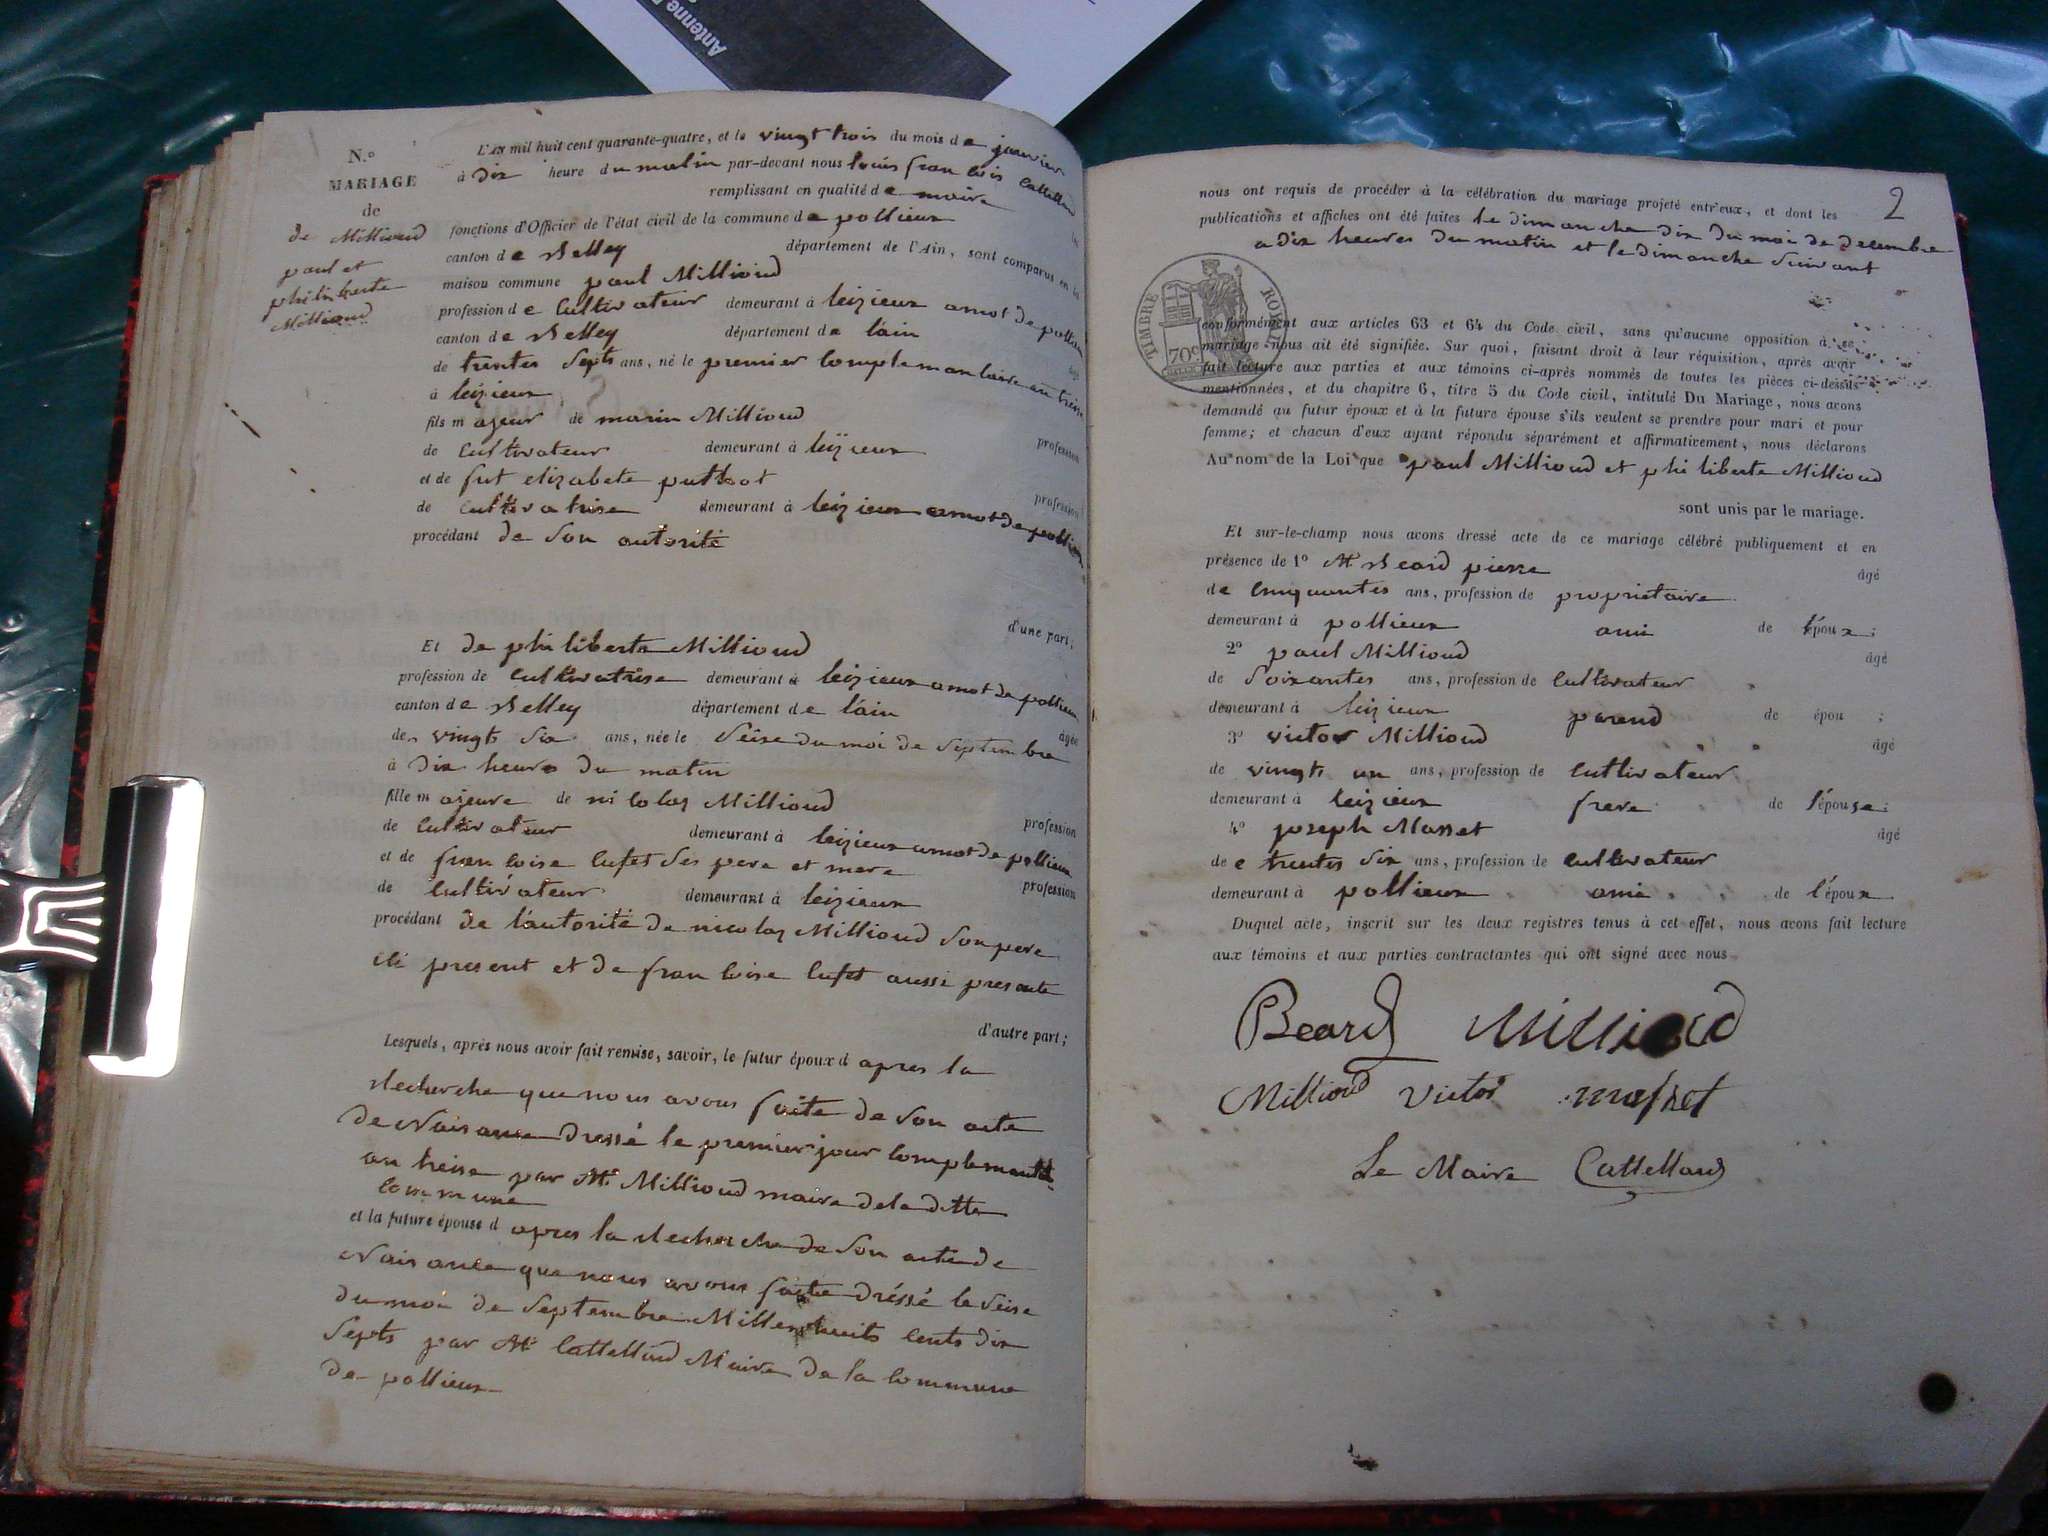 Antenne
N.o
MARIAGE
de
de Millioud
paul et
philiberte
Millioud
L'AN mil huit cent quarante-quatre, et le vingt trois du mois de janvier
à dix heure du matin par-devant nous louis francois Cattelland
remplissant en qualité de maire
fonctions d'Officier de l'état civil de la commune de pollieux
canton de Belley département de l'Ain, sont comparus en la
maison commune paul Millioud
profession de Cultivateur demeurant à leizieux amot de pollieu
canton de Belley département de lain
de trentes septs ans, né le premier complemantaire an treise
à leizieux
fils majeur de marin Millioud
de Cultivateur demeurant à leizieux profession
et de fut elizabete puthot
de cultivatrise demeurant à leizieux amot de pollieu profession
procédant de son autorité
d'une part;
Et de philiberte Millioud
profession de cultivatrise demeurant à leizieux amot de pollieux
canton de Belley département de lain
de vingt six ans, née le seise du moi de septembre âgée
à dix heure du matin
fille majeure de nicolas Millioud
de Cultivateur demeurant à leizieux amot de pollieux profession
et de francoise lufet ses pere et mere
de cultivateur demeurant à leizieux profession
procédant de l'autorité de nicolas Millioud son pere
ici present et de francoise lufet aussi presente
d'autre part;
Lesquels, après nous avoir fait remise, savoir, le futur époux d apres la
recherche que nous avons faite de son acte
de Naisance dressé le premier jour complemant
an treise par Mr Millioud maire de la ditte
commune
et la future épouse d apres la recherche de son acte de
Naisance que nous avons faite dréssé le seise
du moi de septembre Mille huits cents dix
septs par Mr Cattelland Maire de la commune
de pollieux
2
nous ont requis de procéder à la célébration du mariage projeté entr'eux, et dont les
publications et affiches ont été faites le dimanche dix du moi de decembre
a dix heures du matin et le dimanche suivant
TIMBRE ROYAL
70c
conformément aux articles 63 et 64 du Code civil, sans qu'aucune opposition à ce
mariage nous ait été signifiée. Sur quoi, faisant droit à leur réquisition, après avoir
fait lecture aux parties et aux témoins ci-après nommés de toutes les pièces ci-dessus
mentionnées, et du chapitre 6, titre 5 du Code civil, intitulé Du Mariage, nous avons
demandé au futur époux et à la future épouse s'ils veulent se prendre pour mari et pour
femme; et chacun d'eux ayant répondu séparément et affirmativement, nous déclarons
Au nom de la Loi que paul Millioud et philiberte Millioud
sont unis par le mariage.
Et sur-le-champ nous avons dressé acte de ce mariage célébré publiquement et en
présence de 1o Mr Beard pierre âgé
de cinquantes ans, profession de proprietaire
demeurant à pollieux ami de l'époux;
2o paul Millioud âgé
de soixantes ans, profession de Cultivateur
demeurant à leizieux parend de épou ;
3o victor Millioud âgé
de vingts un ans, profession de cultivateur
demeurant à leizieux frere de l'épouse;
4o joseph Masset âgé
de trentes six ans, profession de cultivateur
demeurant à pollieux ami de l'époux
Duquel acte, inscrit sur les deux registres tenus à cet effet, nous avons fait lecture
aux témoins et aux parties contractantes qui ont signé avec nous
Beard Millioud
Millioud Victor masset
Le Maire Cattelland